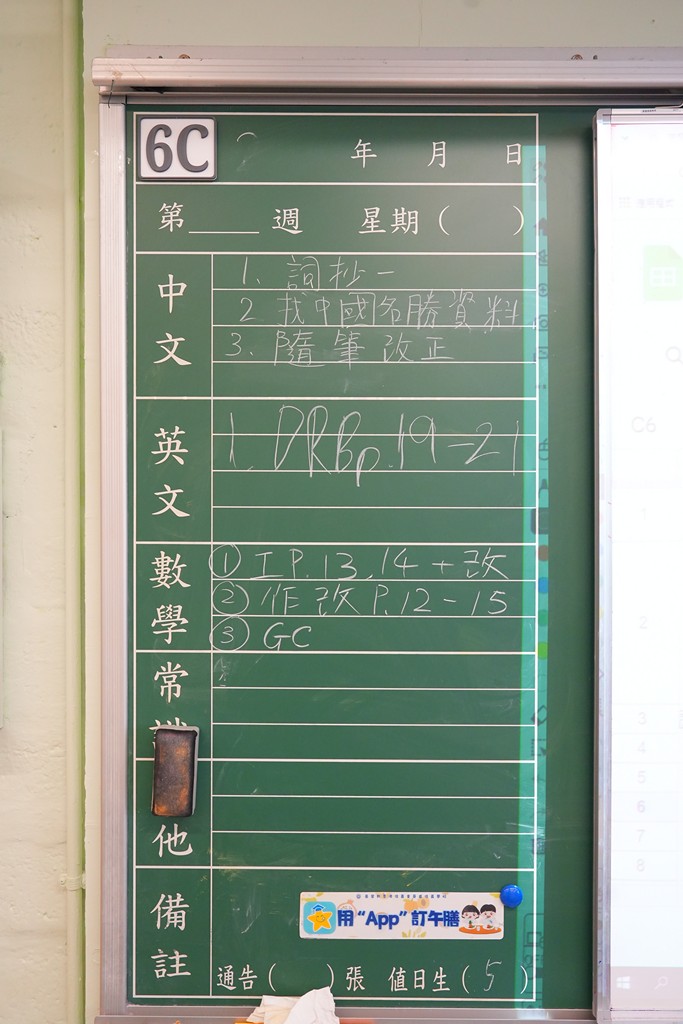 6C
年 月 日
第____週 星期( )
中文
1. 詞抄一
2 找中國名勝資料
3. 隨筆改正
英文
1. DRB p.19-21
數學
① I P.13, 14 + 改
② 作改 P.12-15
③ GC
常
他
備註
用 "App" 訂午膳
通告( )張 值日生(5)
C6
1
2
3
4
5
6
7
8